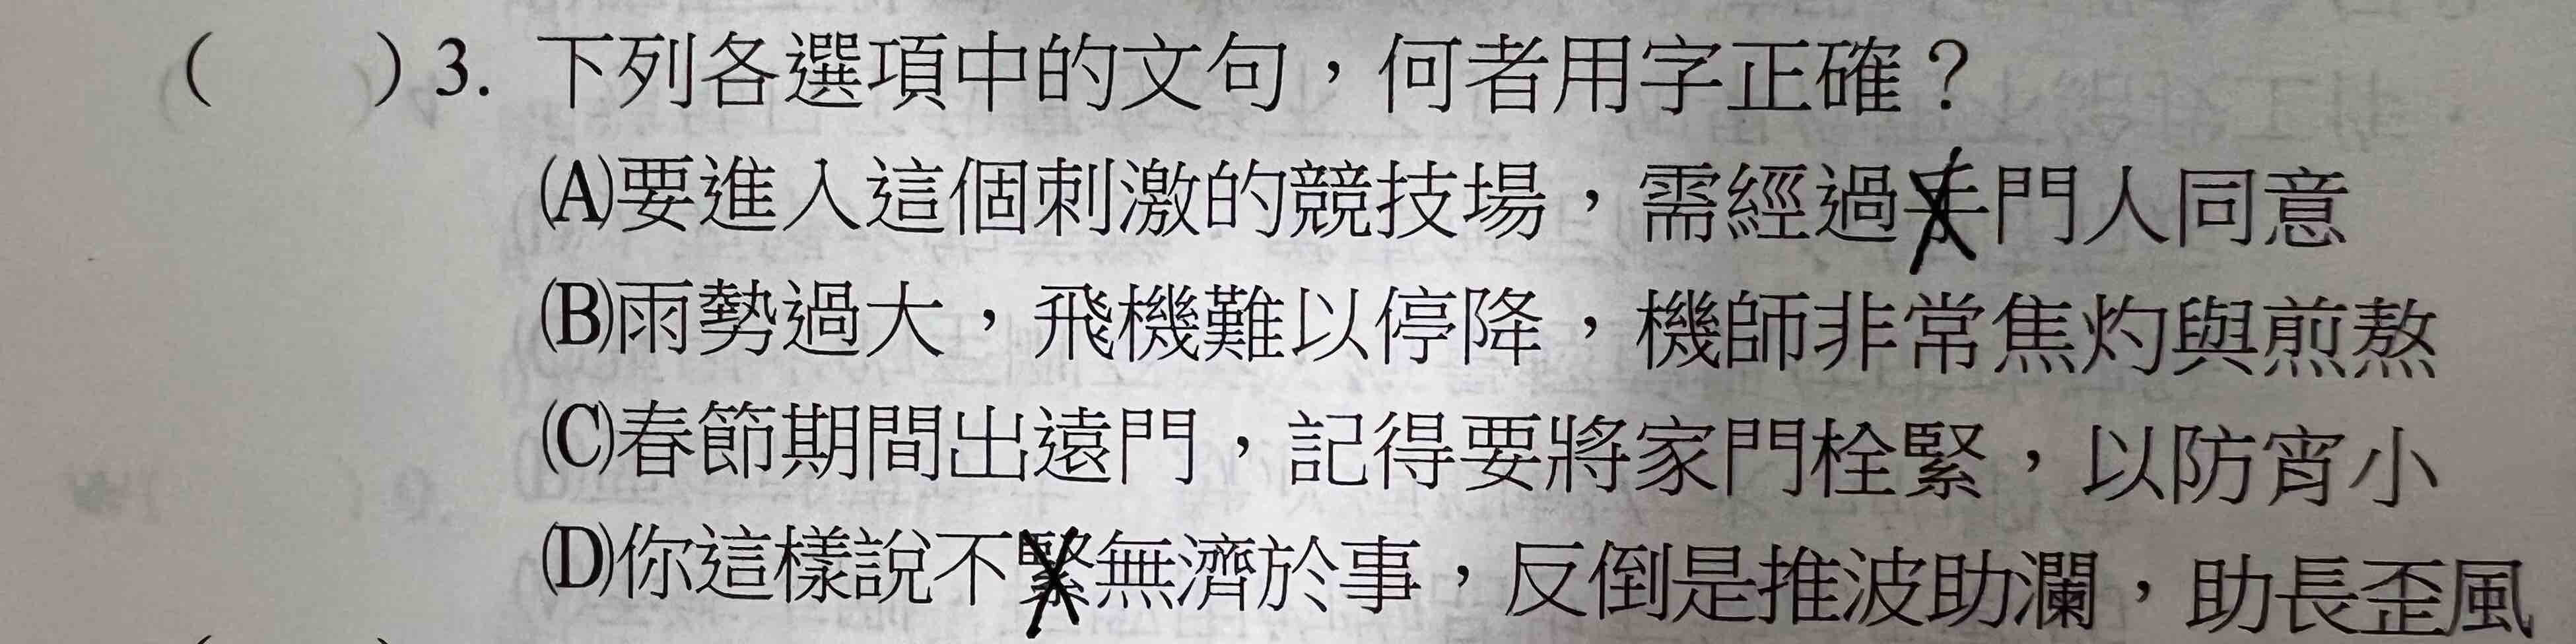 ( )3. 下列各選項中的文句，何者用字正確？
(A)要進入這個刺激的競技場，需經過手門人同意
(B)雨勢過大，飛機難以停降，機師非常焦灼與煎熬
(C)春節期間出遠門，記得要將家門栓緊，以防宵小
(D)你這樣說不緊無濟於事，反倒是推波助瀾，助長歪風